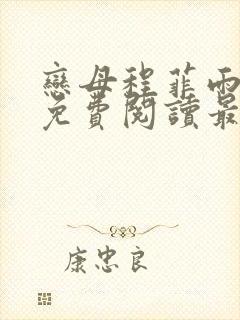 戀母程菲雨
免費閱讀最
康忠良